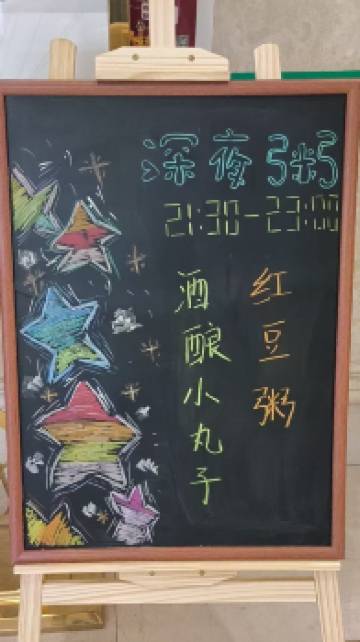 深夜粥
21:30-23:00
红豆粥
酒酿小丸子